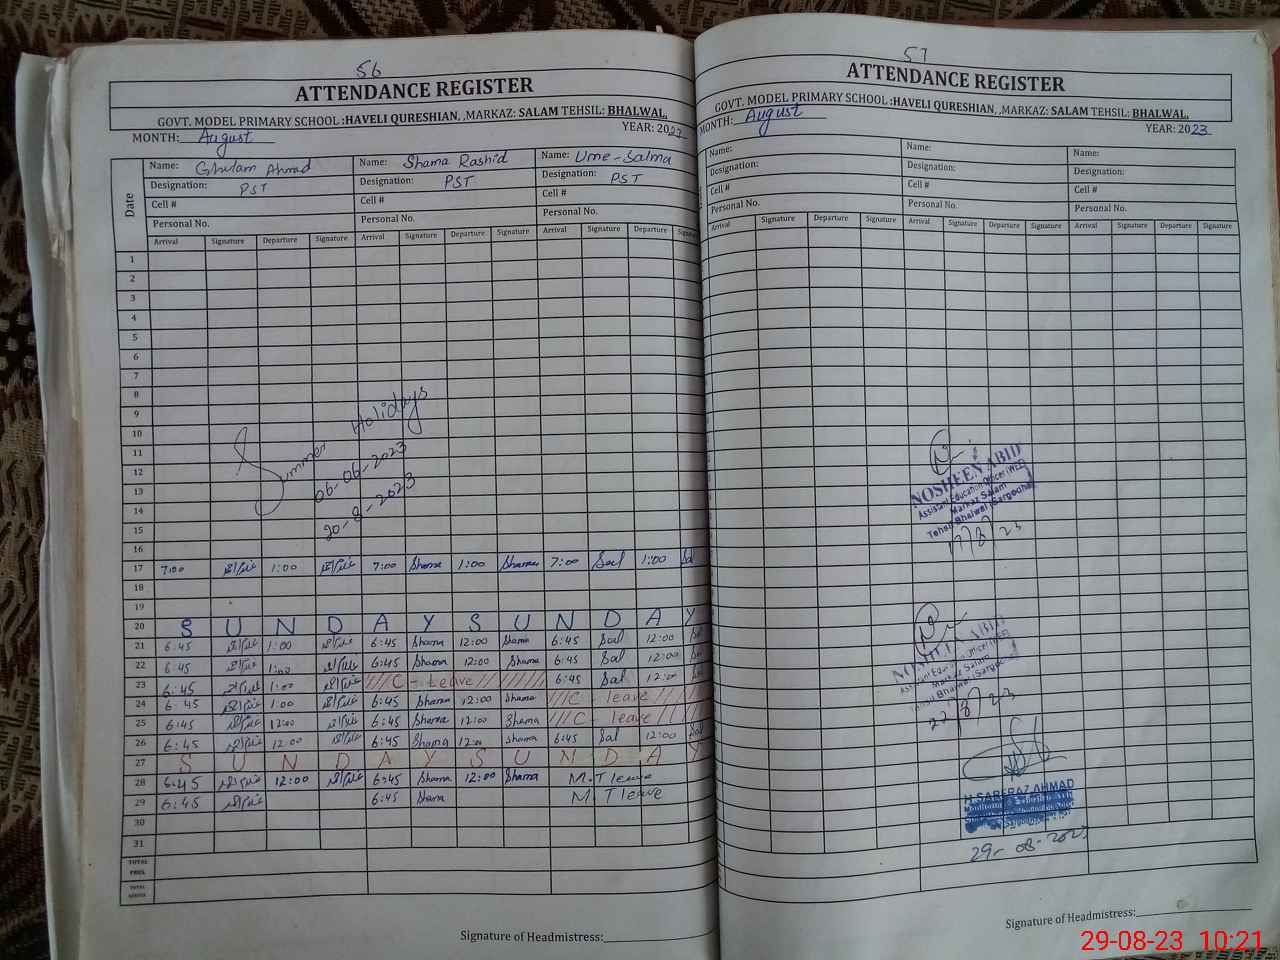 56
ATTENDANCE REGISTER
GOVT. MODEL PRIMARY SCHOOL :HAVELI QURESHIAN, ,MARKAZ: SALAM TEHSIL: BHALWAL.
MONTH: August YEAR: 2023
Date
Name: Ghulam Ahmad Name: Shama Rashid Name: Ume-Salma
Designation: PST Designation: PST Designation: PST
Cell # Cell # Cell #
Personal No. Personal No. Personal No.
Arrival Signature Departure Signature Arrival Signature Departure Signature Arrival Signature Departure
1
2
3
4
5
6
7
8
9
10
11
12
13
14
15
16
Summer Holidays
06-06-2023
20-8-2023
17 7:00 1:00 7:00 Shama 1:00 Shama 7:00 Sal 1:00 Sal
18
19
20 S U N D A Y S U N D A Y
21 6:45 1:00 6:45 Shama 12:00 Shama 6:45 Sal 12:00 Sal
22 6:45 1:00 6:45 Shama 12:00 Shama 6:45 Sal 12:00 Sal
23 6:45 1:00 C - Leave 6:45 Sal 12:00 Sal
24 6:45 1:00 6:45 Shama 12:00 Shama C - leave
25 6:45 12:00 6:45 Shama 12:00 Shama C - leave
26 6:45 12:00 6:45 Shama 12:00 Shama 6:45 Sal 12:00 Sal
27 S U N D A Y S U N D A Y
28 6:45 12:00 6:45 Shama 12:00 Shama M.T leave
29 6:45 6:45 Shama M.T leave
30
31
TOTAL
TOTAL
Signature of Headmistress:
57
ATTENDANCE REGISTER
GOVT. MODEL PRIMARY SCHOOL :HAVELI QURESHIAN, ,MARKAZ: SALAM TEHSIL: BHALWAL.
MONTH: August YEAR: 2023
Name: Name: Name:
Designation: Designation: Designation:
Cell # Cell # Cell #
Personal No. Personal No. Personal No.
Arrival Signature Departure Signature Arrival Signature Departure Signature Arrival Signature Departure Signature
NOSHEEN ABID
Assistant Education Officer (WEE)
Markaz Salam
Tehsil Bhalwal (Sargodha)
17/8/23
NOSHEEN ABID
Assistant Education Officer (WEE)
Markaz Salam
Tehsil Bhalwal (Sargodha)
22/8/23
H.SARFRAZ AHMAD
29-08-2023
Signature of Headmistress:
29-08-23 10:21